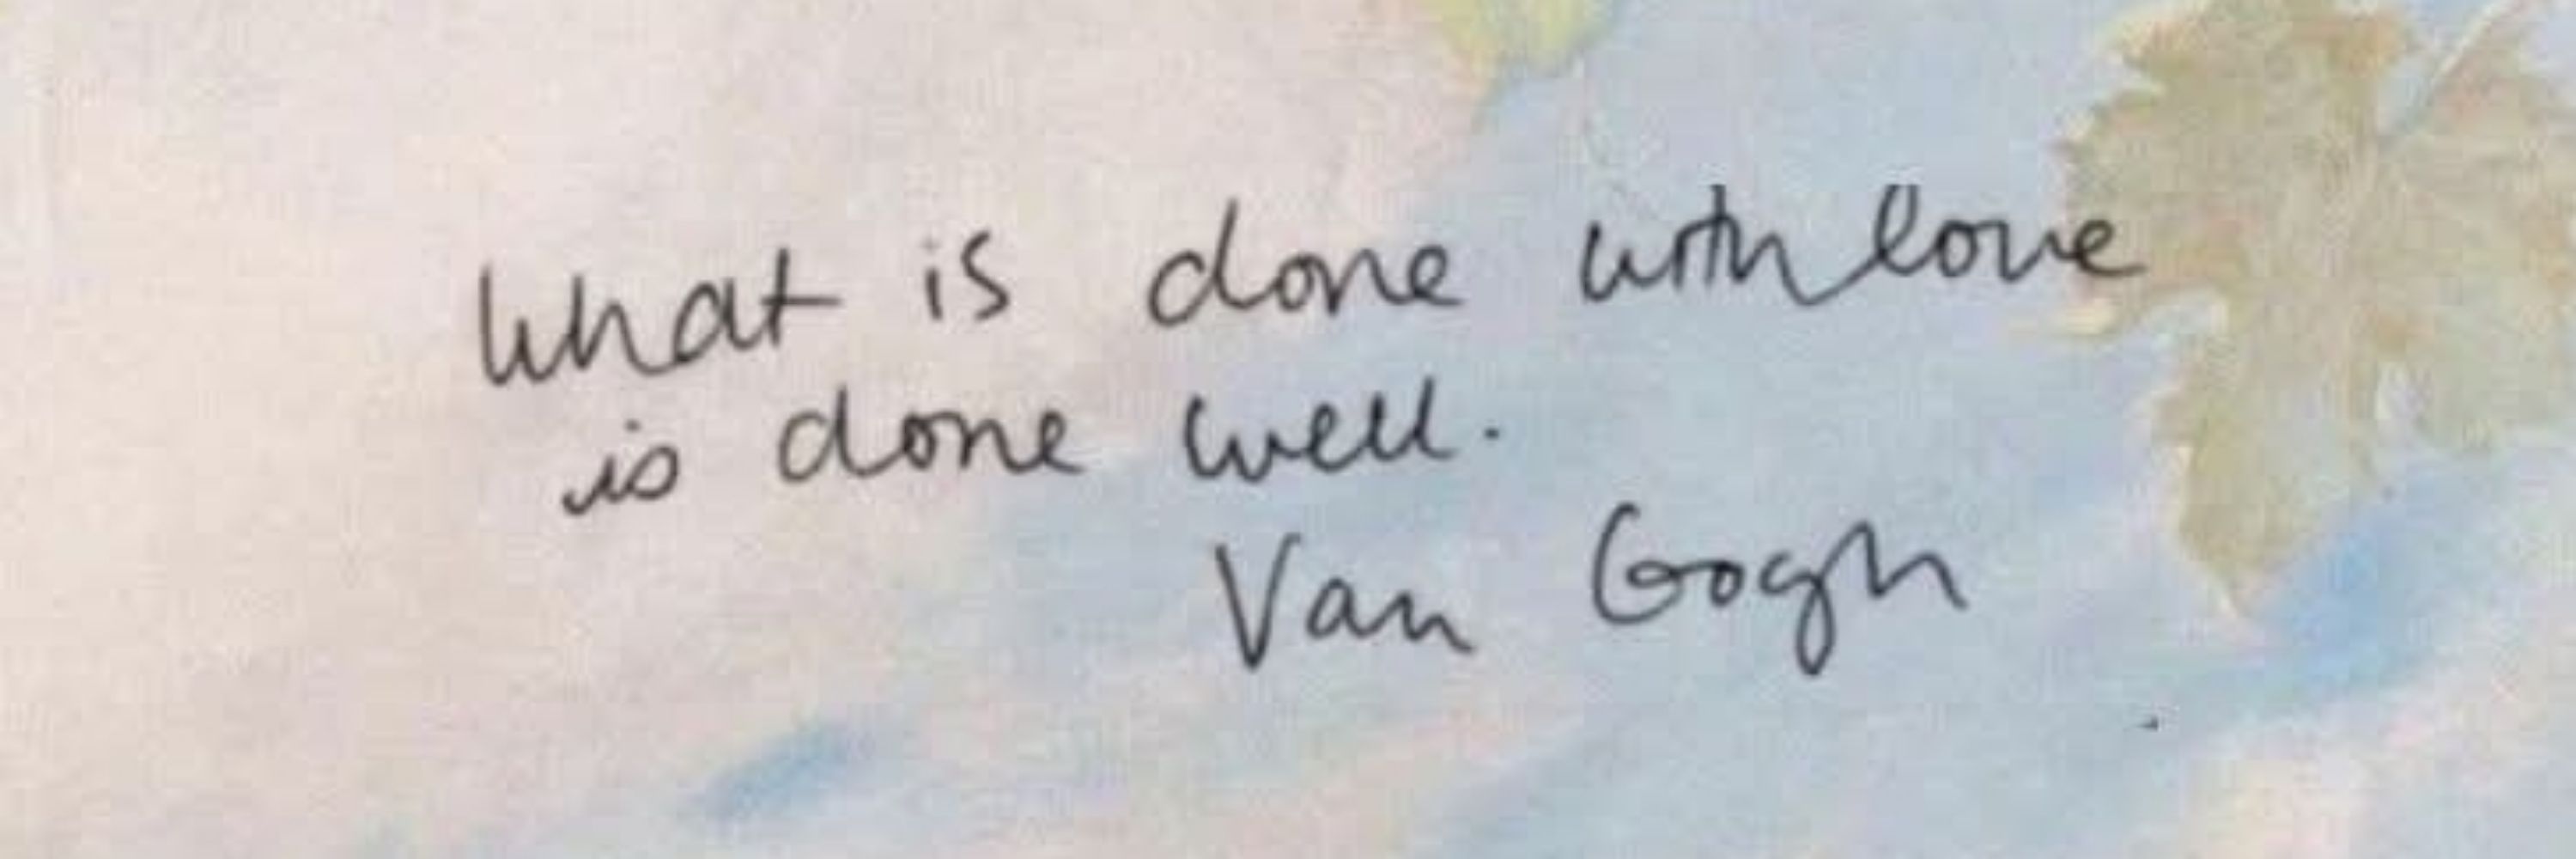 What is done with love
is done well.
Van Gogh